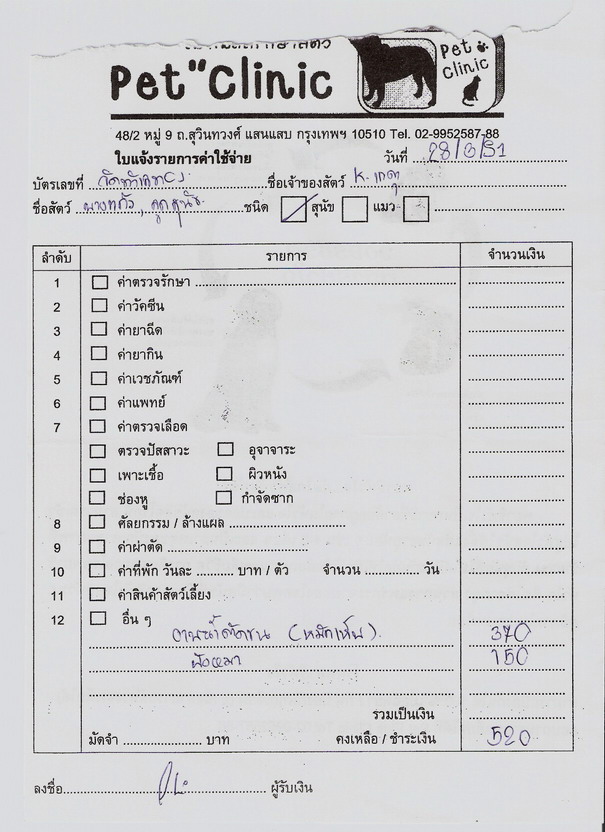 Pet"Clinic
Pet Clinic
48/2 หมู่ 9 ถ.สุวินทวงศ์ แสนแสบ กรุงเทพฯ 10510 Tel. 02-9952587-88
ใบแจ้งรายการค่าใช้จ่าย วันที่ 28/6/51
บัตรเลขที่ ชื่อเจ้าของสัตว์ K. เกตุ
ชื่อสัตว์ ชนิด สุนัข แมว
ลำดับ รายการ จำนวนเงิน
1 ค่าตรวจรักษา
2 ค่าวัคซีน
3 ค่ายาฉีด
4 ค่ายากิน
5 ค่าเวชภัณฑ์
6 ค่าแพทย์
7 ค่าตรวจเลือด
ตรวจปัสสาวะ อุจจาระ
เพาะเชื้อ ผิวหนัง
ช่องหู กำจัดซาก
8 ศัลยกรรม / ล้างแผล
9 ค่าผ่าตัด
10 ค่าที่พัก วันละ บาท / ตัว จำนวน วัน
11 ค่าสินค้าสัตว์เลี้ยง
12 อื่น ๆ
อาบน้ำตัดขน (หมักเห็บ). 370
150
รวมเป็นเงิน
มัดจำ บาท คงเหลือ / ชำระเงิน 520
ลงชื่อ ผู้รับเงิน